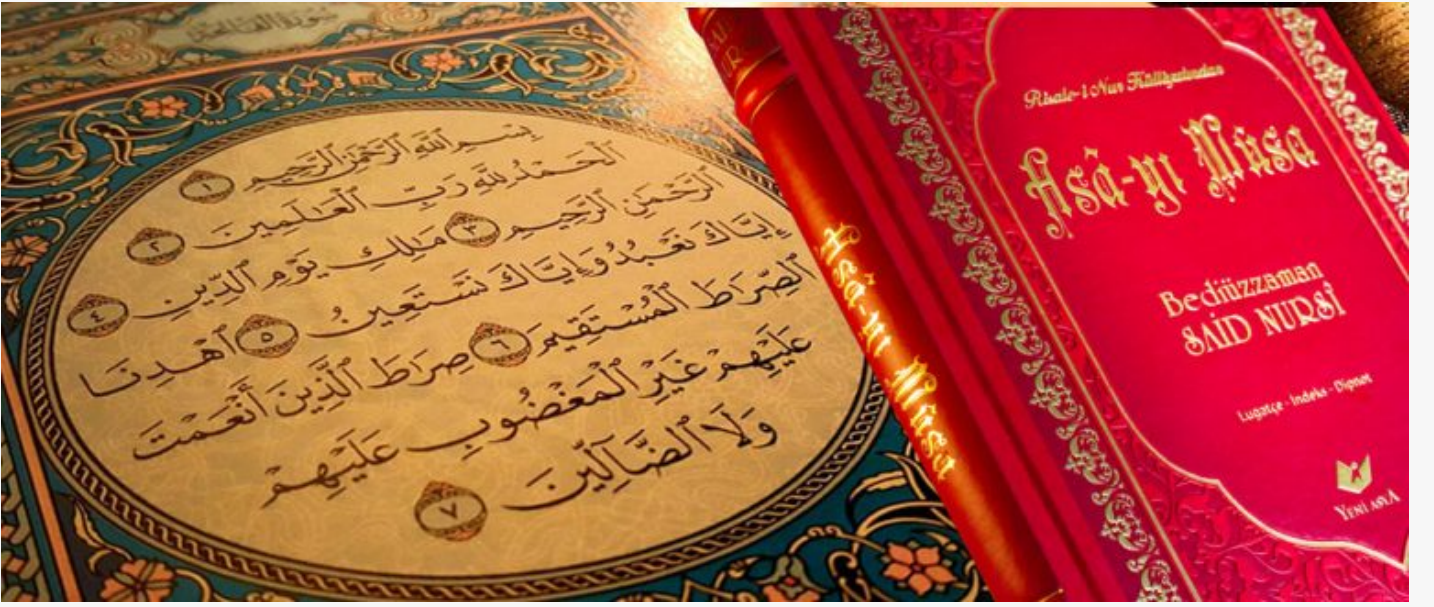 سُورَةُ الفَاتِحَةِ
بِسْمِ ٱللَّهِ ٱلرَّحْمَٰنِ ٱلرَّحِيمِ ١
ٱلْحَمْدُ لِلَّهِ رَبِّ ٱلْعَٰلَمِينَ ٢
ٱلرَّحْمَٰنِ ٱلرَّحِيمِ ٣ مَٰلِكِ يَوْمِ ٱلدِّينِ ٤
إِيَّاكَ نَعْبُدُ وَإِيَّاكَ نَسْتَعِينُ ٥ ٱهْدِنَا
ٱلصِّرَٰطَ ٱلْمُسْتَقِيمَ ٦ صِرَٰطَ ٱلَّذِينَ أَنْعَمْتَ
عَلَيْهِمْ غَيْرِ ٱلْمَغْضُوبِ عَلَيْهِمْ
وَلَا ٱلضَّآلِّينَ ٧
Asâ-yı Mûsa
Risale-i Nur Külliyatından
Asâ-yı Mûsa
Bediüzzaman
SAİD NURSÎ
Lugatçe - İndeks - Dipnot
YENİ ASYA